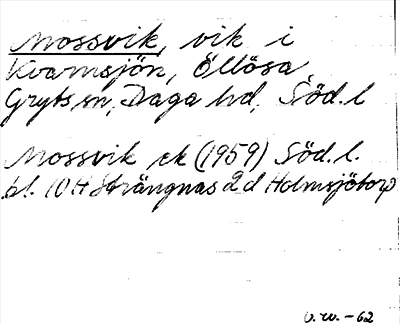 Mossvik, vik i
Kvarnsjön, Ellösa,
Gryts sn, Daga hd, Söd. l
Mossvik ek (1959) Söd. l.
bl. 10H Strängnäs 2d Holmsjötorp
-62